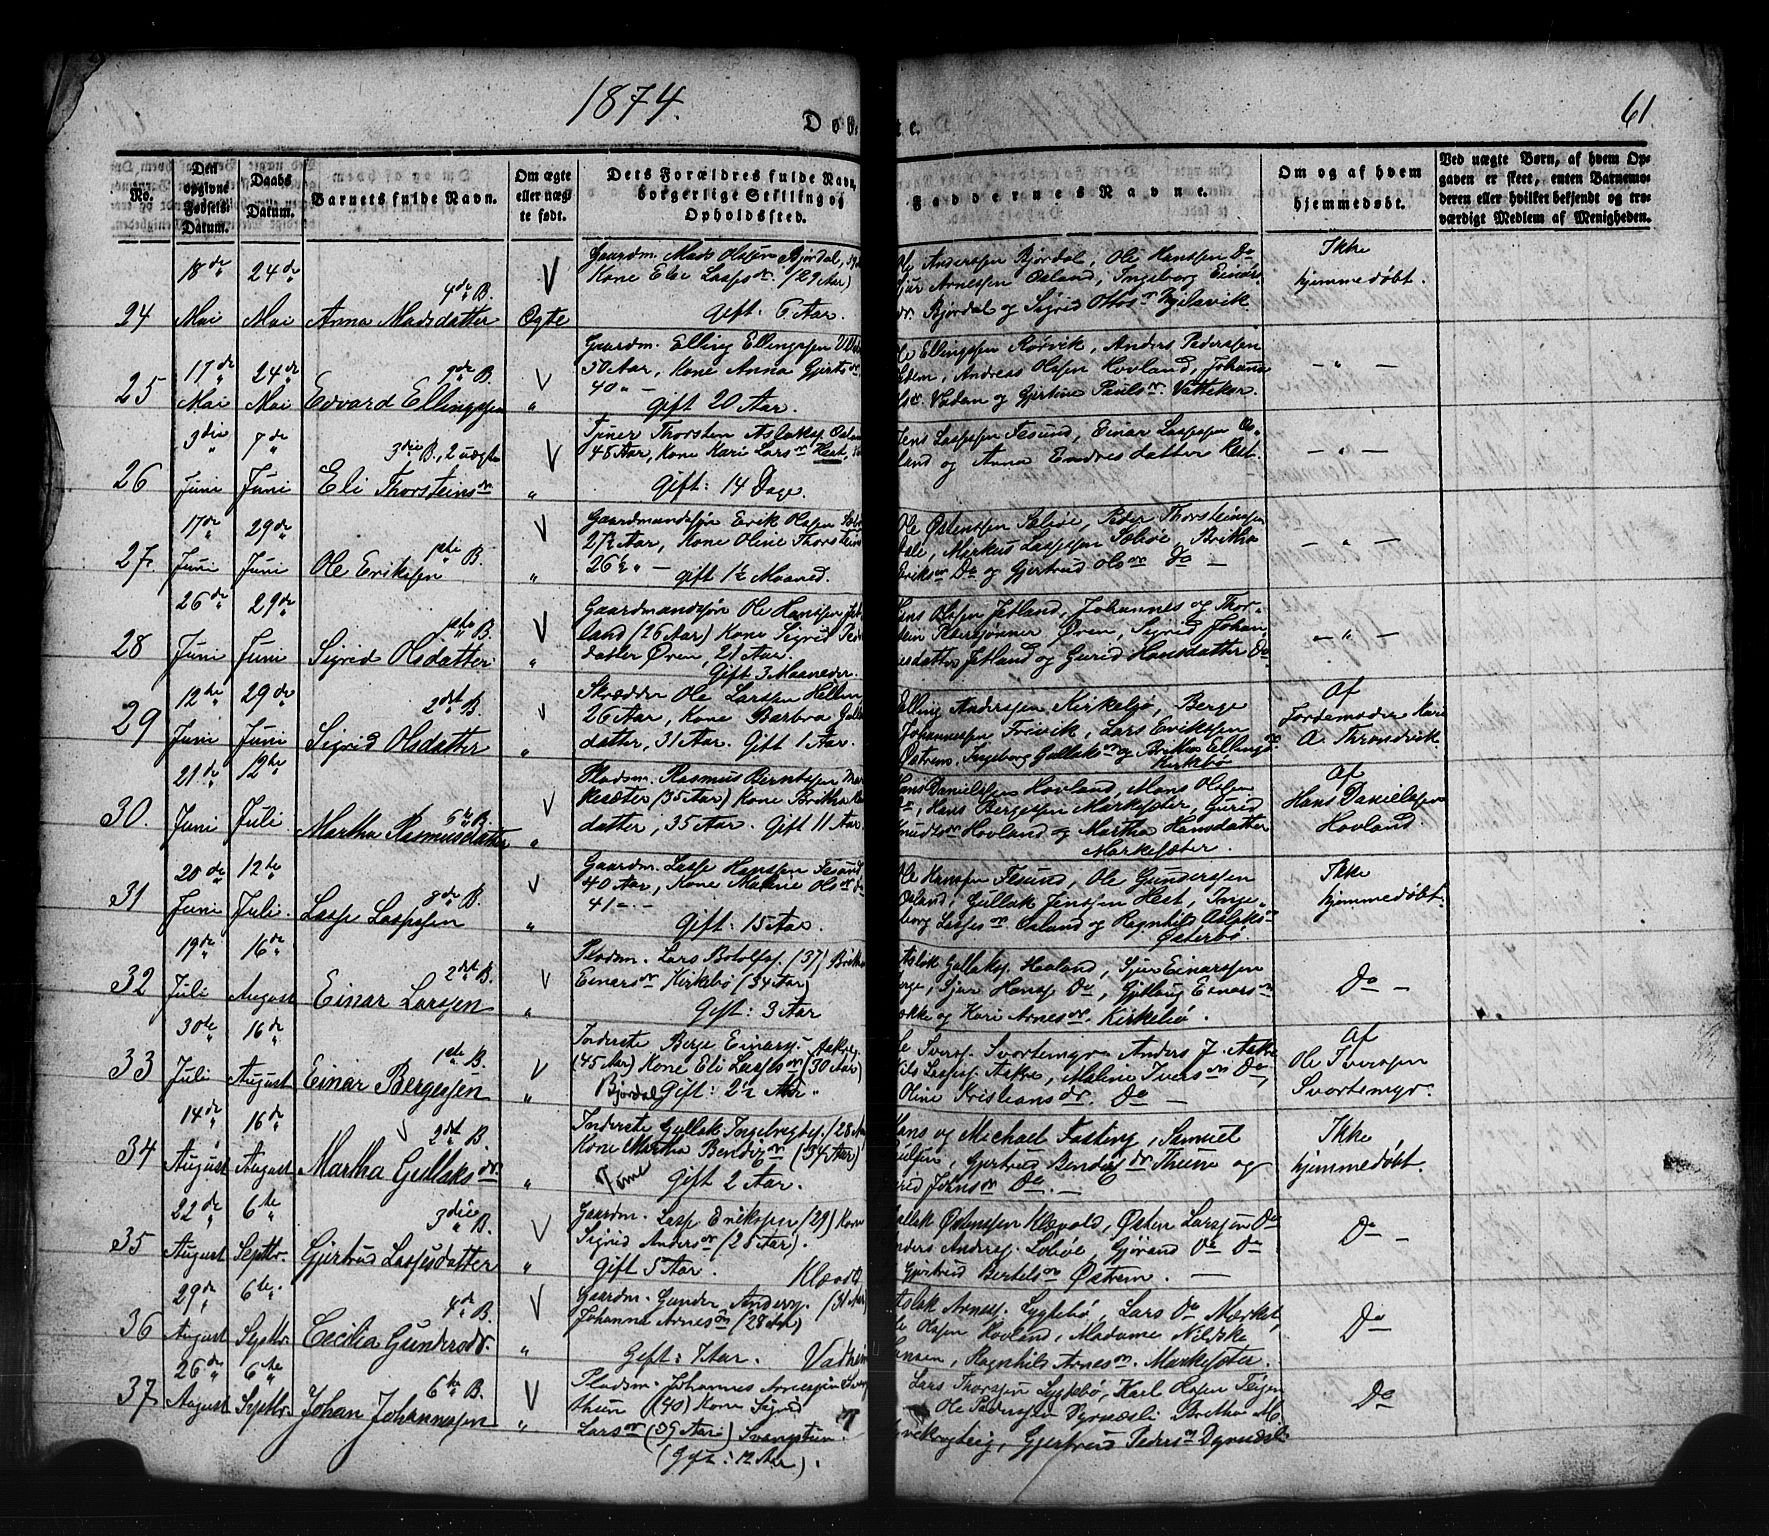 1874.
61.
Døb te.
No.
Den opgivne Fødsels Datum.
Daabs Datum.
Barnets fulde Navn.
Om ægte eller uægte født.
Dets Forældres fulde Navn, borgerlige Stilling og Opholdssted.
Faddernes Navne.
Om og af hvem hjemmedøbt.
Ved uægte Børn, af hvem Opgaven er skeet, enten Barnemoderen eller hvilket bekjendt og troværdigt Medlem af Menigheden.
24
18de Mai
24de Mai
4de B.
Anna Madsdatter
Ægte
Gaardm. Mads Olssen Bjørdal,
Kone Eli Lasses dr (29 Aar)
Gift: 6 Aar.
Anderssen Bjørdal, Ole Hanssen Do
Arnessen Osland, Ingeborg Einars
dr Bjørdal og Sigrid Ottos dr
Ikke
hjemmedøbt.
25
17de Mai
24de Mai
9de B.
Edvard Ellingssen
"
Gaardm. Elling Ellingssen
50 Aar, Kone Anna Gjerts dr
40 " -
Gift 20 Aar.
Ellingssen Rørvik, Anders Pederssen
Andreas Olssen Hovland, Johanna
Vadan og Gjertine Pauls dr Vattekar
- " -
26
3die Juni
7de Juni
3die B., 2 uægte
Eli Thorsteins dr
"
Tjener Thorsten Aslaks.
45 Aar, Kone Kari Lars dr Hest,
Gift: 14 Dage.
Jens Lassesen Fesund, Einar Lassesen Os
land og Anna Endresdatter Hest.
- " -
27.
17de Juni
29de Juni
1ste B.
Ole Erikssen
"
Gaardmandssøn Erik Olssen
27½ Aar, Kone Oline Thorsteins
26½ " -
gift 1½ Maaned.
Ole Østenssen Sæbøe, Peder Thorsteinssen
Markus Lassesen Sæbøe, Britha
Eriks dr Do og Gjertrud Ols dr Do -
- " -
28
26de Juni
29de Juni
1ste B.
Sigrid Olsdatter
"
Gaardmandssøn Ole Hanssen Jet
land (26 Aar) Kone Sigrid Peders
datter Øren, 21 Aar.
Gift 3 Maaneder.
Hans Olssen Jetland, Johannes og Thor
stein Pederssønner Øren, Sigrid Johan
nesdatter Jetland og Gurid Hansdatter Do
- " -
29
12te Juni
29de Juni
2det B.
Sigrid Olsdatter
"
Skrædder Ole Larssen Hellen
26 Aar, Kone Barbra Gullaks
datter, 31 Aar. Gift 1 Aar.
Elling Anderssen Kirkebø, Berge
Johannessen Frivik, Lars Erikssen
Østrem, Ingeborg Gullaks dr og Britha Ellings dr
Kirkebø
Af
Jordemoder Kari
A. Throndvik.
30.
21de Juni
12te Juli
5te B.
Martha Rasmusdatter
"
Pladsm. Rasmus Berntssen Mar
kesæter (35 Aar) Kone Britha
datter, 35 Aar. Gift 11 Aar.
Hans Danielssen Hovland, Mons Olssen
Do, Hans Bergessen Markesæter, Gurid
Knuds dr Hovland og Martha Hansdatter
Markesæter.
Af
Hans Danielssen
Hovland.
31
20de Juni
12te Juli.
8de B.
Lasse Lassesen
"
Gaardm. Lasse Hanssen Fesund
40 Aar, Kone Malene Ols dr
41 - " -
Gift: 15 Aar.
Ole Hanssen Fesund, Ole Gunderssen
Osland, Gullak Jenssen Hest, Inge
borg Lasses dr Osland og Ragnhild Aslaks dr
Østerbø.
Ikke
hjemmedøbt.
32
19de Juli
16de August
2det B.
Einar Larssen
"
Pladsm. Lars Botolfs. (37) Britha
Einars dr Kirkebø (34 Aar)
Gift: 3 Aar
Aslak Gullaks. Hovland, Sjur Einarssen
Sjur Hanss. Do, Gjetlaug Einars dr
og Kari Arnes dr Kirkebø.
Do -
33
30te Juli
16de August
1ste B.
Einar Bergessen
"
Inderste Berge Einars.
(45 Aar) Kone Eli Lasses dr (30 Aar)
Bjørdal Gift: 2½ Aar.
Ole Ivers. Svortemyr Anders J. Aakre
Nils Lasses. Aakre, Maline Ivers dr Do,
Oline Kristians dr. Do -
Af
Ole Iverssen
Svortemyr.
34
14de August
16de August
2det B.
Martha Gullaks dr
"
Inderste Gullak Ingebrigts. (28 Aar
Kone Martha Bendiks dr (34 Aar)
Gift 2 Aar.
Hans og Michael Fasting, Samuel
Gjertrud Bendiks dr Thune og
Johns dr Do. -
Ikke
hjemmedøbt.
35
22de August
6te Septbr.
3die B.
Gjertrud Lassesdatter
"
Gaardm. Lasse Erikssen (29) Kone
Sigrid Anders dr (28 Aar).
Gift 5 Aar.
Gullak Østenssen Klævold, Østen Larssen Do
Anders Anderss. Sæbøe, Gjørand Do Do
Gjertrud Bertels dr Østrem. -
Do -
36
29de August
6te Septbr.
4de B.
Cecilia Gundersdr.
"
Gaardm. Gunder Anders. (31 Aar
Johanna Arnes dr (28 Aar)
Gift: 7 Aar. Vadheim
Aslak Arness. Lyglebø, Lars Do Mærket,
Olssen Hovland, Madame Nilske
Hansen, Ragnhild Arnes dr Markesæter.
Do
37
26de August
6te Septbr.
6te B.
Johan Johannessen
"
Pladsm. Johannes Arnessen
(40) Kone Sigrid
Lars dr (39 Aar)
(Gift: 12 Aar).
Lars Thorssen Lyglebø, Karl Olssen Teigen
Ole Pederssen Dyrnæsli Britha M.
Gjertrud Peders dr Dyrnæsli
Do